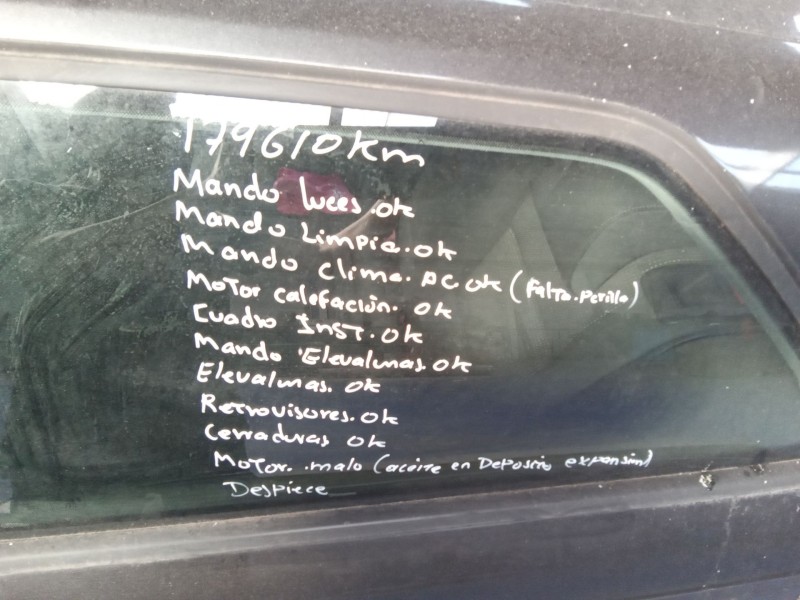 179610km
Mando luces.ok
Mando Limpia.ok
Mando clima.AC ok (Falta.Perilla)
Motor calefación. ok
Cuadro Inst.ok
Mando Elevalunas.ok
Elevalunas. ok
Retrovisores.ok
Cerraduras ok
Motor.malo (aceite en Deposito expansion)
Despiece